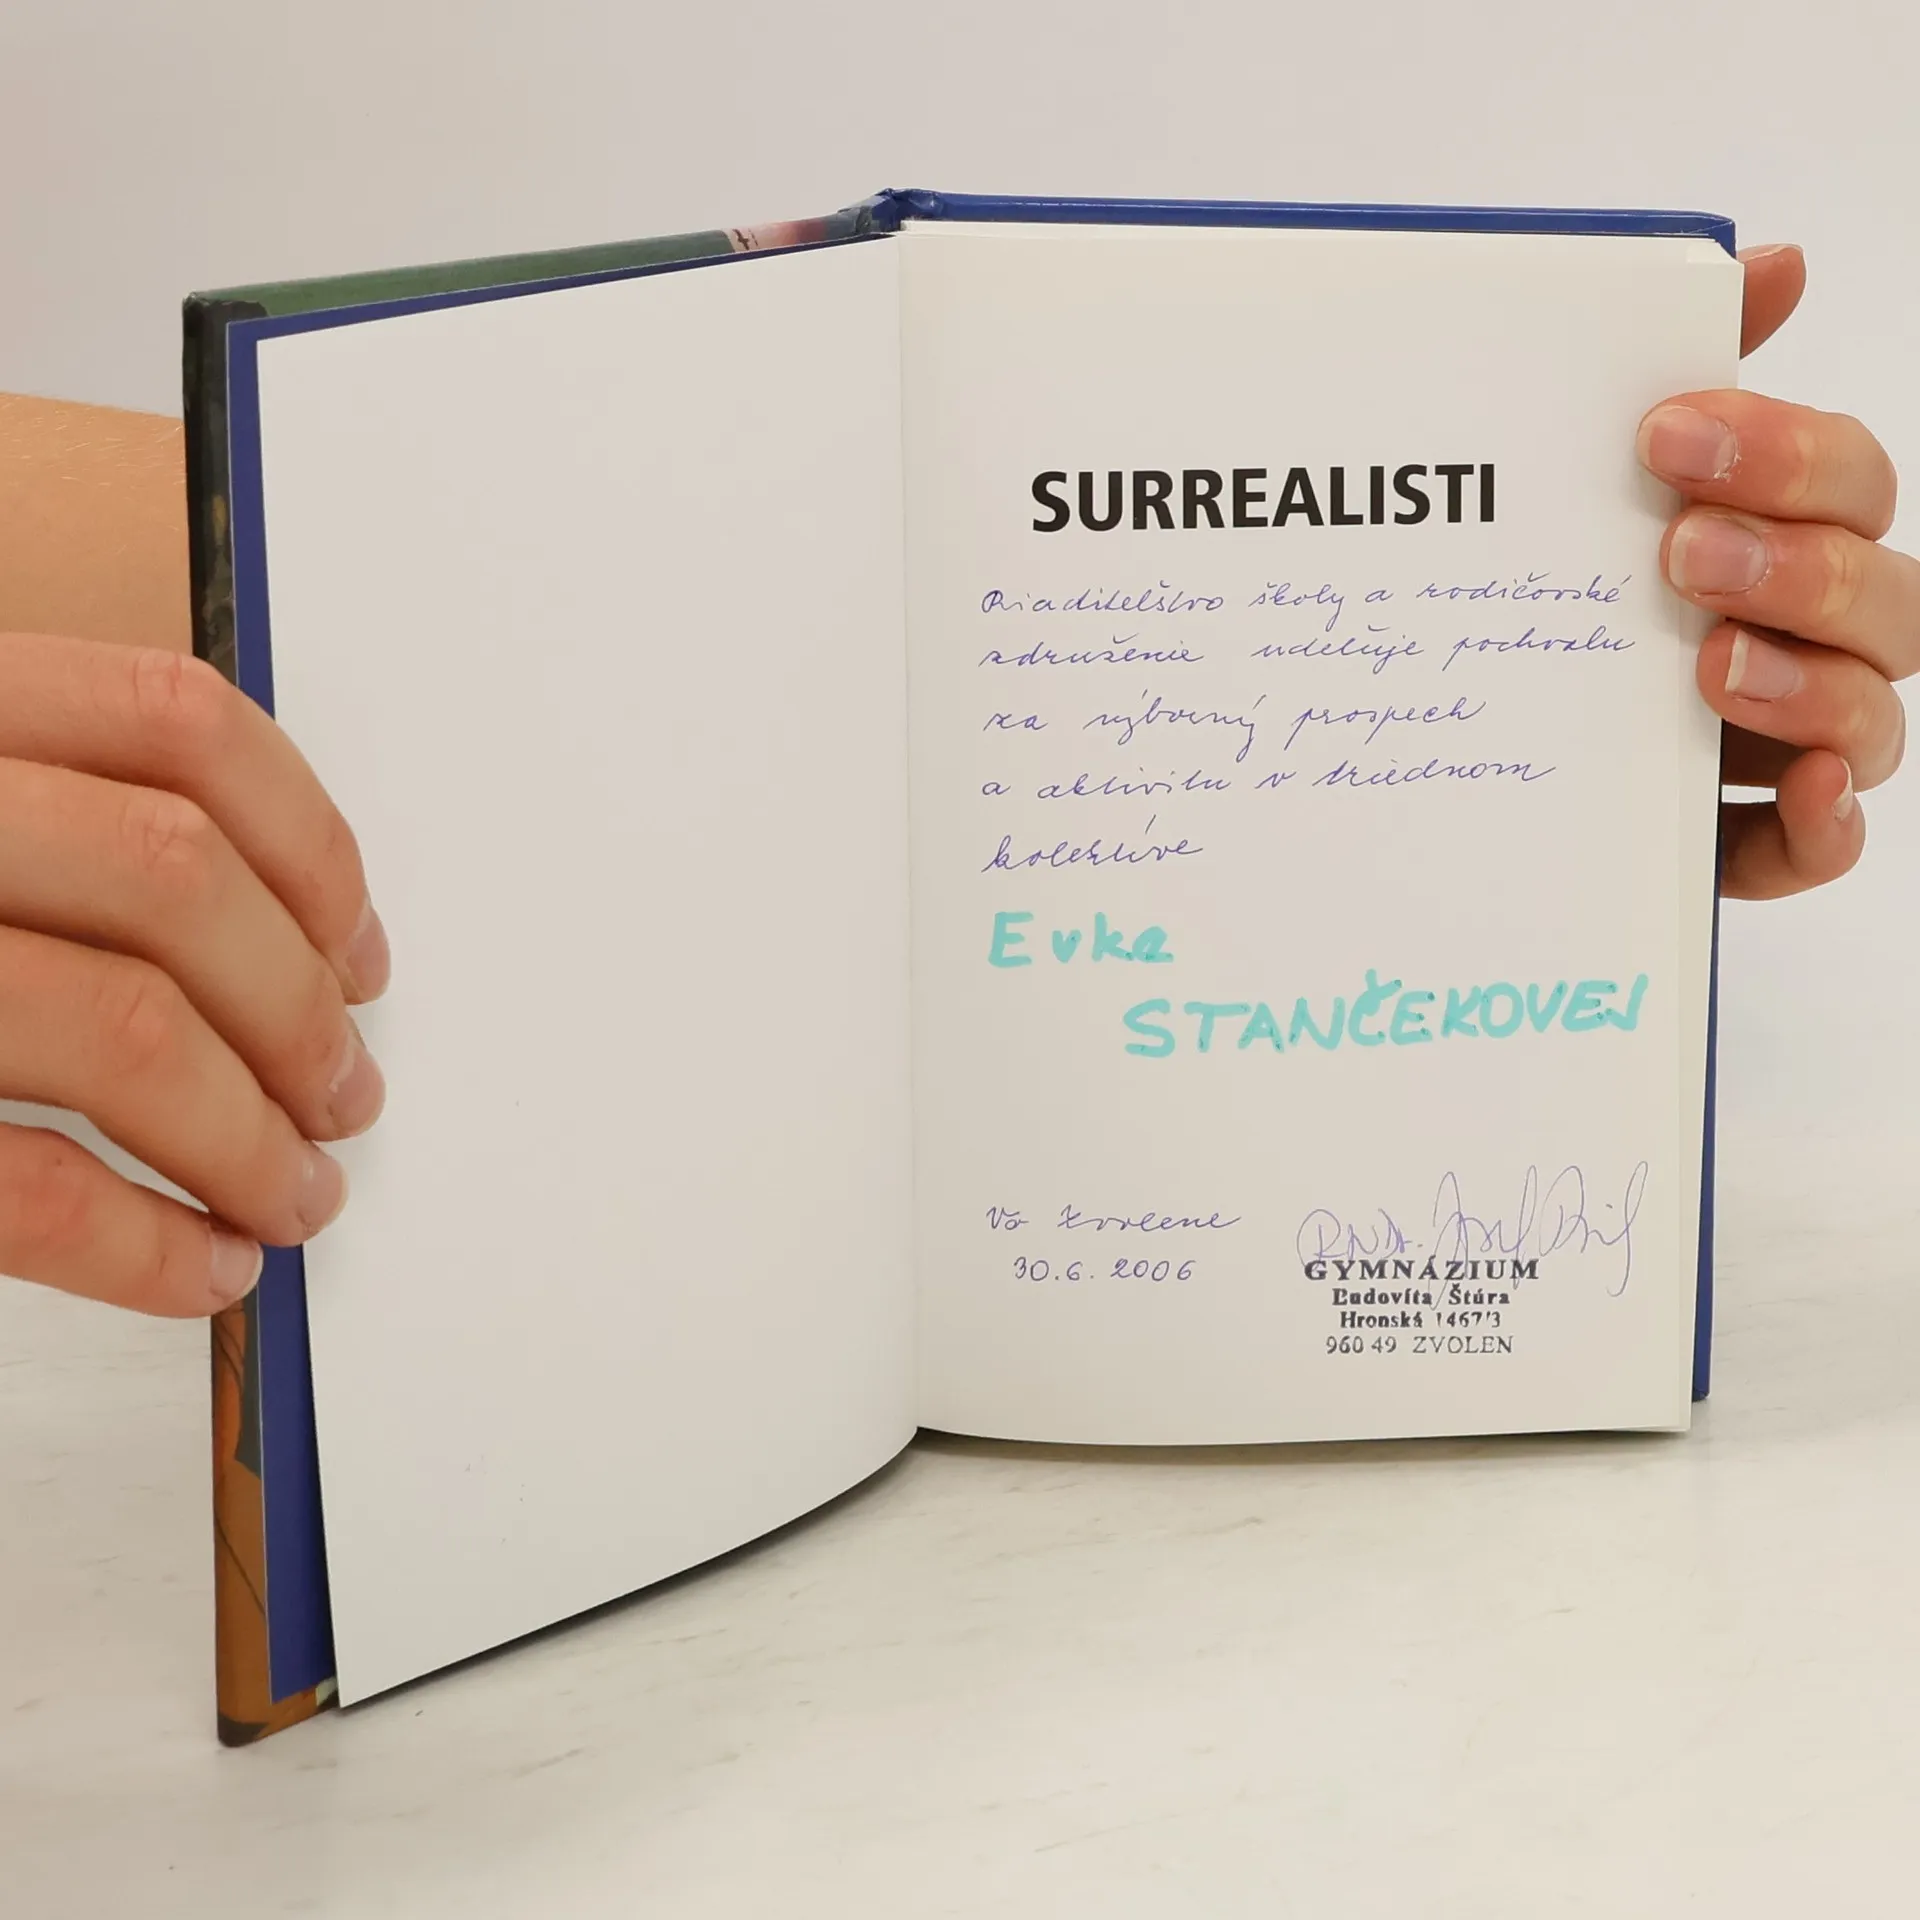 SURREALISTI
Riaditeľstvo školy a rodičovské
združenie udeľuje pochvalu
za výborný prospech
a aktivitu v triednom
kolektíve
Evke
STANČEKOVEJ
Vo Zvolene
30.6.2006
RNDr. Jozef
GYMNÁZIUM
Ľudovíta Štúra
Hronská 1467/3
960 49 ZVOLEN